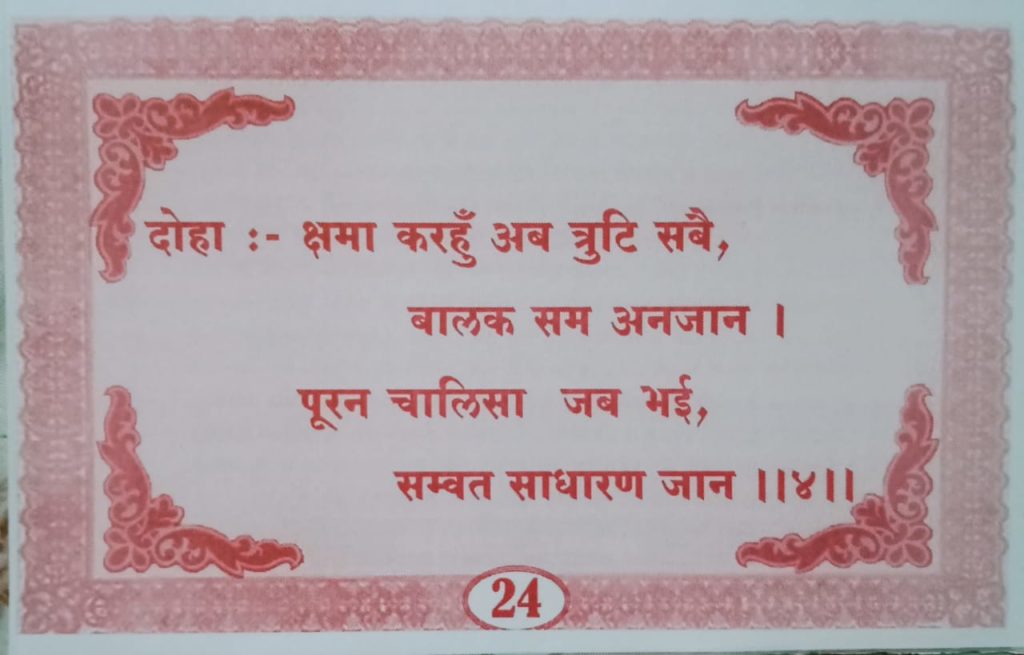 दोहा :- क्षमा करहुँ अब त्रुटि सबै,
बालक सम अनजान ।
पूरन चालिसा जब भई,
सम्वत साधारण जान ।।४।।
24